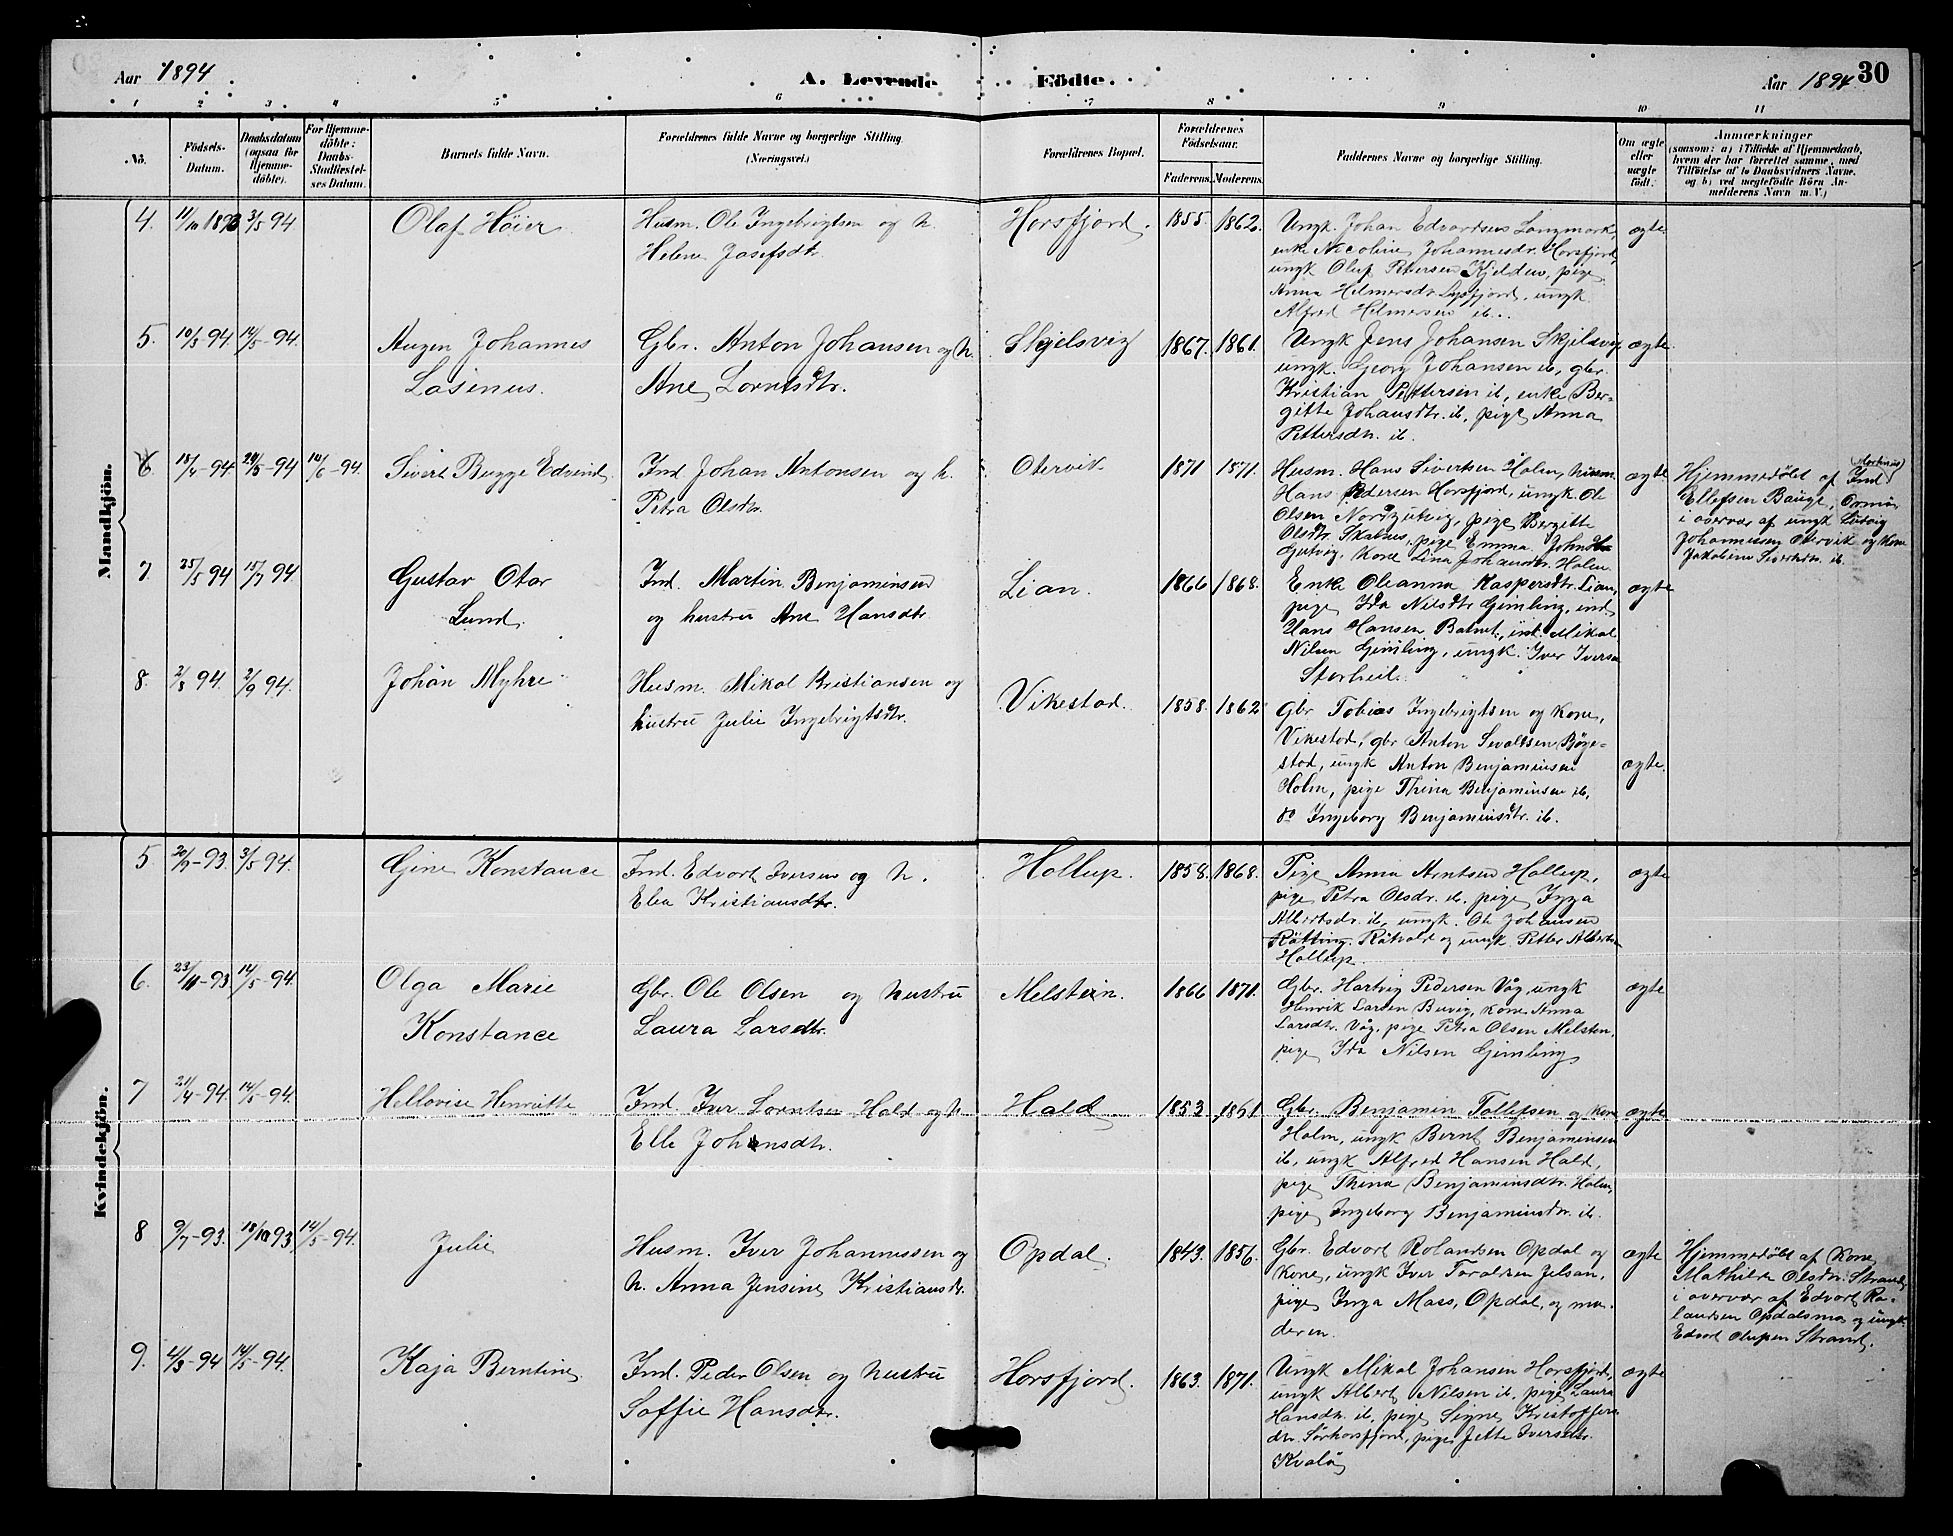 Aar 1894
A. Levende Födte.
Aar 1894
30
1 2 3 4 5 6 7 8 9 10 11
No.
Födsels-
Datum.
Daabsdatum
(ogsaa for
Hjemme-
döbte).
For Hjemme-
döbte:
Daabs-
Stadfæstel-
ses Datum.
Barnets fulde Navn.
Forældrenes fulde Navne og borgerlige Stilling
(Næringsvei.)
Forældrenes Bopæl.
Forældrenes
Födselsaar.
Faderens. Moderens.
Faddernes Navne og borgerlige Stilling.
Om ægte
eller
uægte
födt.
Anmærkninger
(saasom: a) i Tilfælde af Hjemmedaab,
hvem der har forrettet samme, med
Tilföielse af to Daabsvidners Navne.
og b) ved uægtefödte Börn An-
melderens Navn m. V.)
Mandkjön.
4. 11/10 1893 3/5 94
Olaf Höier
Husm. Ole Ingebrigtsen og h.
Helene Josefsdtr.
Horsfjord.
1855. 1862.
Ungk. Johan Edvardsens Langmork,
enke Nicoline Johannesdr. Horsfjord,
ungk Oluf Petersen Kjelden, pige
Anna Helmersdr. Lysfjord, ungk
Alfred Helmersen ib.
ægte.
5. 10/3-94 14/5-94.
Augen Johannes
Lasinus.
Gbr. Anton Johansen og h.
Ane Lorntsdtr.
Skjelsvig
1867. 1861.
Ungk Jens Johansen Skjelsvig,
ungk. Georg Johansen ib, gbr.
Kristian Pettersen ib, enke Ber-
gitte Johansdtr. ib, pige Anna
Pettersdtr. ib.
ægte.
6. 18/4-94 24/5-94 10/6-94.
Sivert Bugge Edvind
Ind Johan Antonsen og h.
Petra Olsdtr.
Otervik
1871 1871.
Husm. Hans Sivertsen Holm, husm.
Hans Pedersen Horsfjord, ungk. Ole
Olsen Nordgutvig, pige Bergitte
Olsdtr. Skalnes, pige Emma Johnsdtr
Gutvig, kone Lina Johansdtr. Holm.
ægte
Hjemmedöbt af Ind (Martinus)
Ellefsen Bauge,
i overvær af ungk Ludvig
Johannessen Otervik og kone
Jakobine Sivertsdtr. ib.
7. 25/5 94 15/7 94
Gustav Otar
Lund.
Ind. Martin Benjaminsen
og hustru Ane Hansdtr.
Lian.
1866 1868.
Enke Oleanna Kaspersdtr. Lian,
pige Ida Nilsdtr Gimling, ind
Hans Hansen Botnet, ind. Mikal
Nilsen Gimling, ungk. Iver Iversen
Storheil.
ægte
8. 2/8 94. 2/9 94.
Johan Myhre
Husm. Mikal Kristiansen og
hustru Julie Ingebrigtsdtr.
Vikestad.
1858. 1862
Gbr Tobias Ingebrigtsen og kone,
Vikestad, gbr Anton Sevaltsen Böge-
stad, ungk Anton Benjaminsen
Holm, pige Thina Benjaminsen ib,
do Ingeborg Benjaminsdtr. ib.
ægte.
Kvindekjön.
5. 20/9-93. 3/5 94.
Gine Konstance
Ind. Edvart Iversen og h.
Elen Kristiansdtr.
Hollup.
1858. 1868.
Pige Anna Arntsen Hollup,
pige Petra Olsdr. ib. pige Inga
Albertsdr. ib, ungk. Ole Johansen
Råtting. Råtvold og ungk. Petter Albertsen
Hollup.
ægte
6. 23/11-93 14/5-94.
Olga Marie
Konstance
Gbr. Ole Olsen og hustru
Laura Larsdtr.
Melstein.
1866 1871.
Gbr. Hartvig Pedersen Våg, ungk
Henrik Larsen Buvig, kone Anna
Larsdtr. Våg. pige Petra Olsen Melsten,
pige Ida Nilsen Gimling
ægte
7 21/4-94. 14/5-94.
Hellovise Henriette
Ind. Iver Lorntsen Hald og h
Elle Johansdtr.
Hald
1853. 1861
Gbr. Benjamin Tollefsen og kone
Holm, ungk Bernt Benjaminsen
ib, ungk Alfred Hansen Hald,
pige Thina Benjaminsdtr. Holm,
pige Ingeborg Benjaminsdtr. ib.
ægte
8 9/7-93. 18/10 93 14/5-94.
Julie
Husm. Iver Johannessen og
h. Anna Jensine Kristiansdtr.
Opdal.
1843. 1856.
Gbr. Edvart Rolandsen Opdal og
kone, ungk Iver Toraldsen Jelsan,
pige Inga Mass, Opdal, og mo-
deren.
ægte
Hjemmedöbt af Kone
Mathilde Olsdtr. Strand,
i overvær af Edvart Ro-
landsen Opdalsmo og ungk
Edvart Olufsen Strand.
9. 4/3-94 14/5-94.
Kaja Berntine
Ind. Peder Olsen og hustru
Soffie Hansdtr.
Horsfjord.
1863. 1871.
Ungk Mikal Johansen Horsfjord,
ungk Albert Nilsen ib, pige Laura
Hansdtr. ib, pige Signe Kristoffers-
dtr. Sörhorsfjord, pige Jette Iversdtr.
Kvalö
ægte